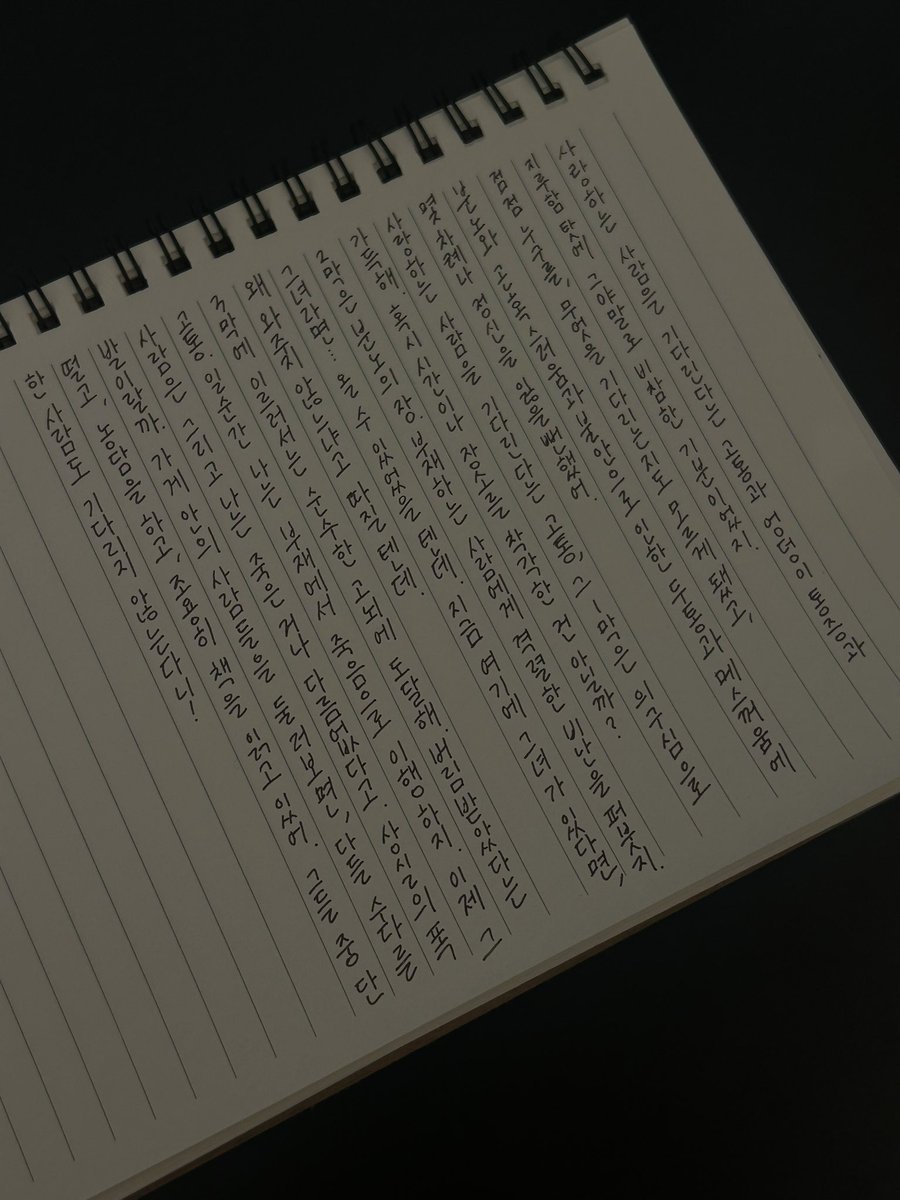 사랑하는 사람을 기다린다는 고통과 엉덩이 통증과
지루함 탓에 그야말로 비참한 기분이었지.
점점 누구를, 무엇을 기다리는지도 모르게 됐고,
분노와 곤혹스러움과 불안으로 인한 두통과 메스꺼움에
몇 차례나 정신을 잃을 뻔했어.
사랑하는 사람을 기다린다는 고통, 그 1막은 의구심으로
가득해. 혹시 시간이나 장소를 착각한 건 아닐까?
2막은 분노의 장. 부재하는 사람에게 격렬한 비난을 퍼붓지.
그녀라면... 올 수 있었을 텐데. 지금 여기에 그녀가 있다면,
왜 와주지 않느냐고 따질 텐데.
3막에 이르러서는 순수한 고뇌에 도달해. 버림받았다는
고통. 일순간 나는 부재에서 죽음으로 이행하지. 이제 그
사람은 그리고 나는 죽은 거나 다름없다고. 상실의 폭
발이랄까. 가게 안의 사람들을 둘러보면, 다들 수다를
떨고, 농담을 하고, 조용히 책을 읽고 있어. 그들 중 단
한 사람도 기다리지 않는다니!